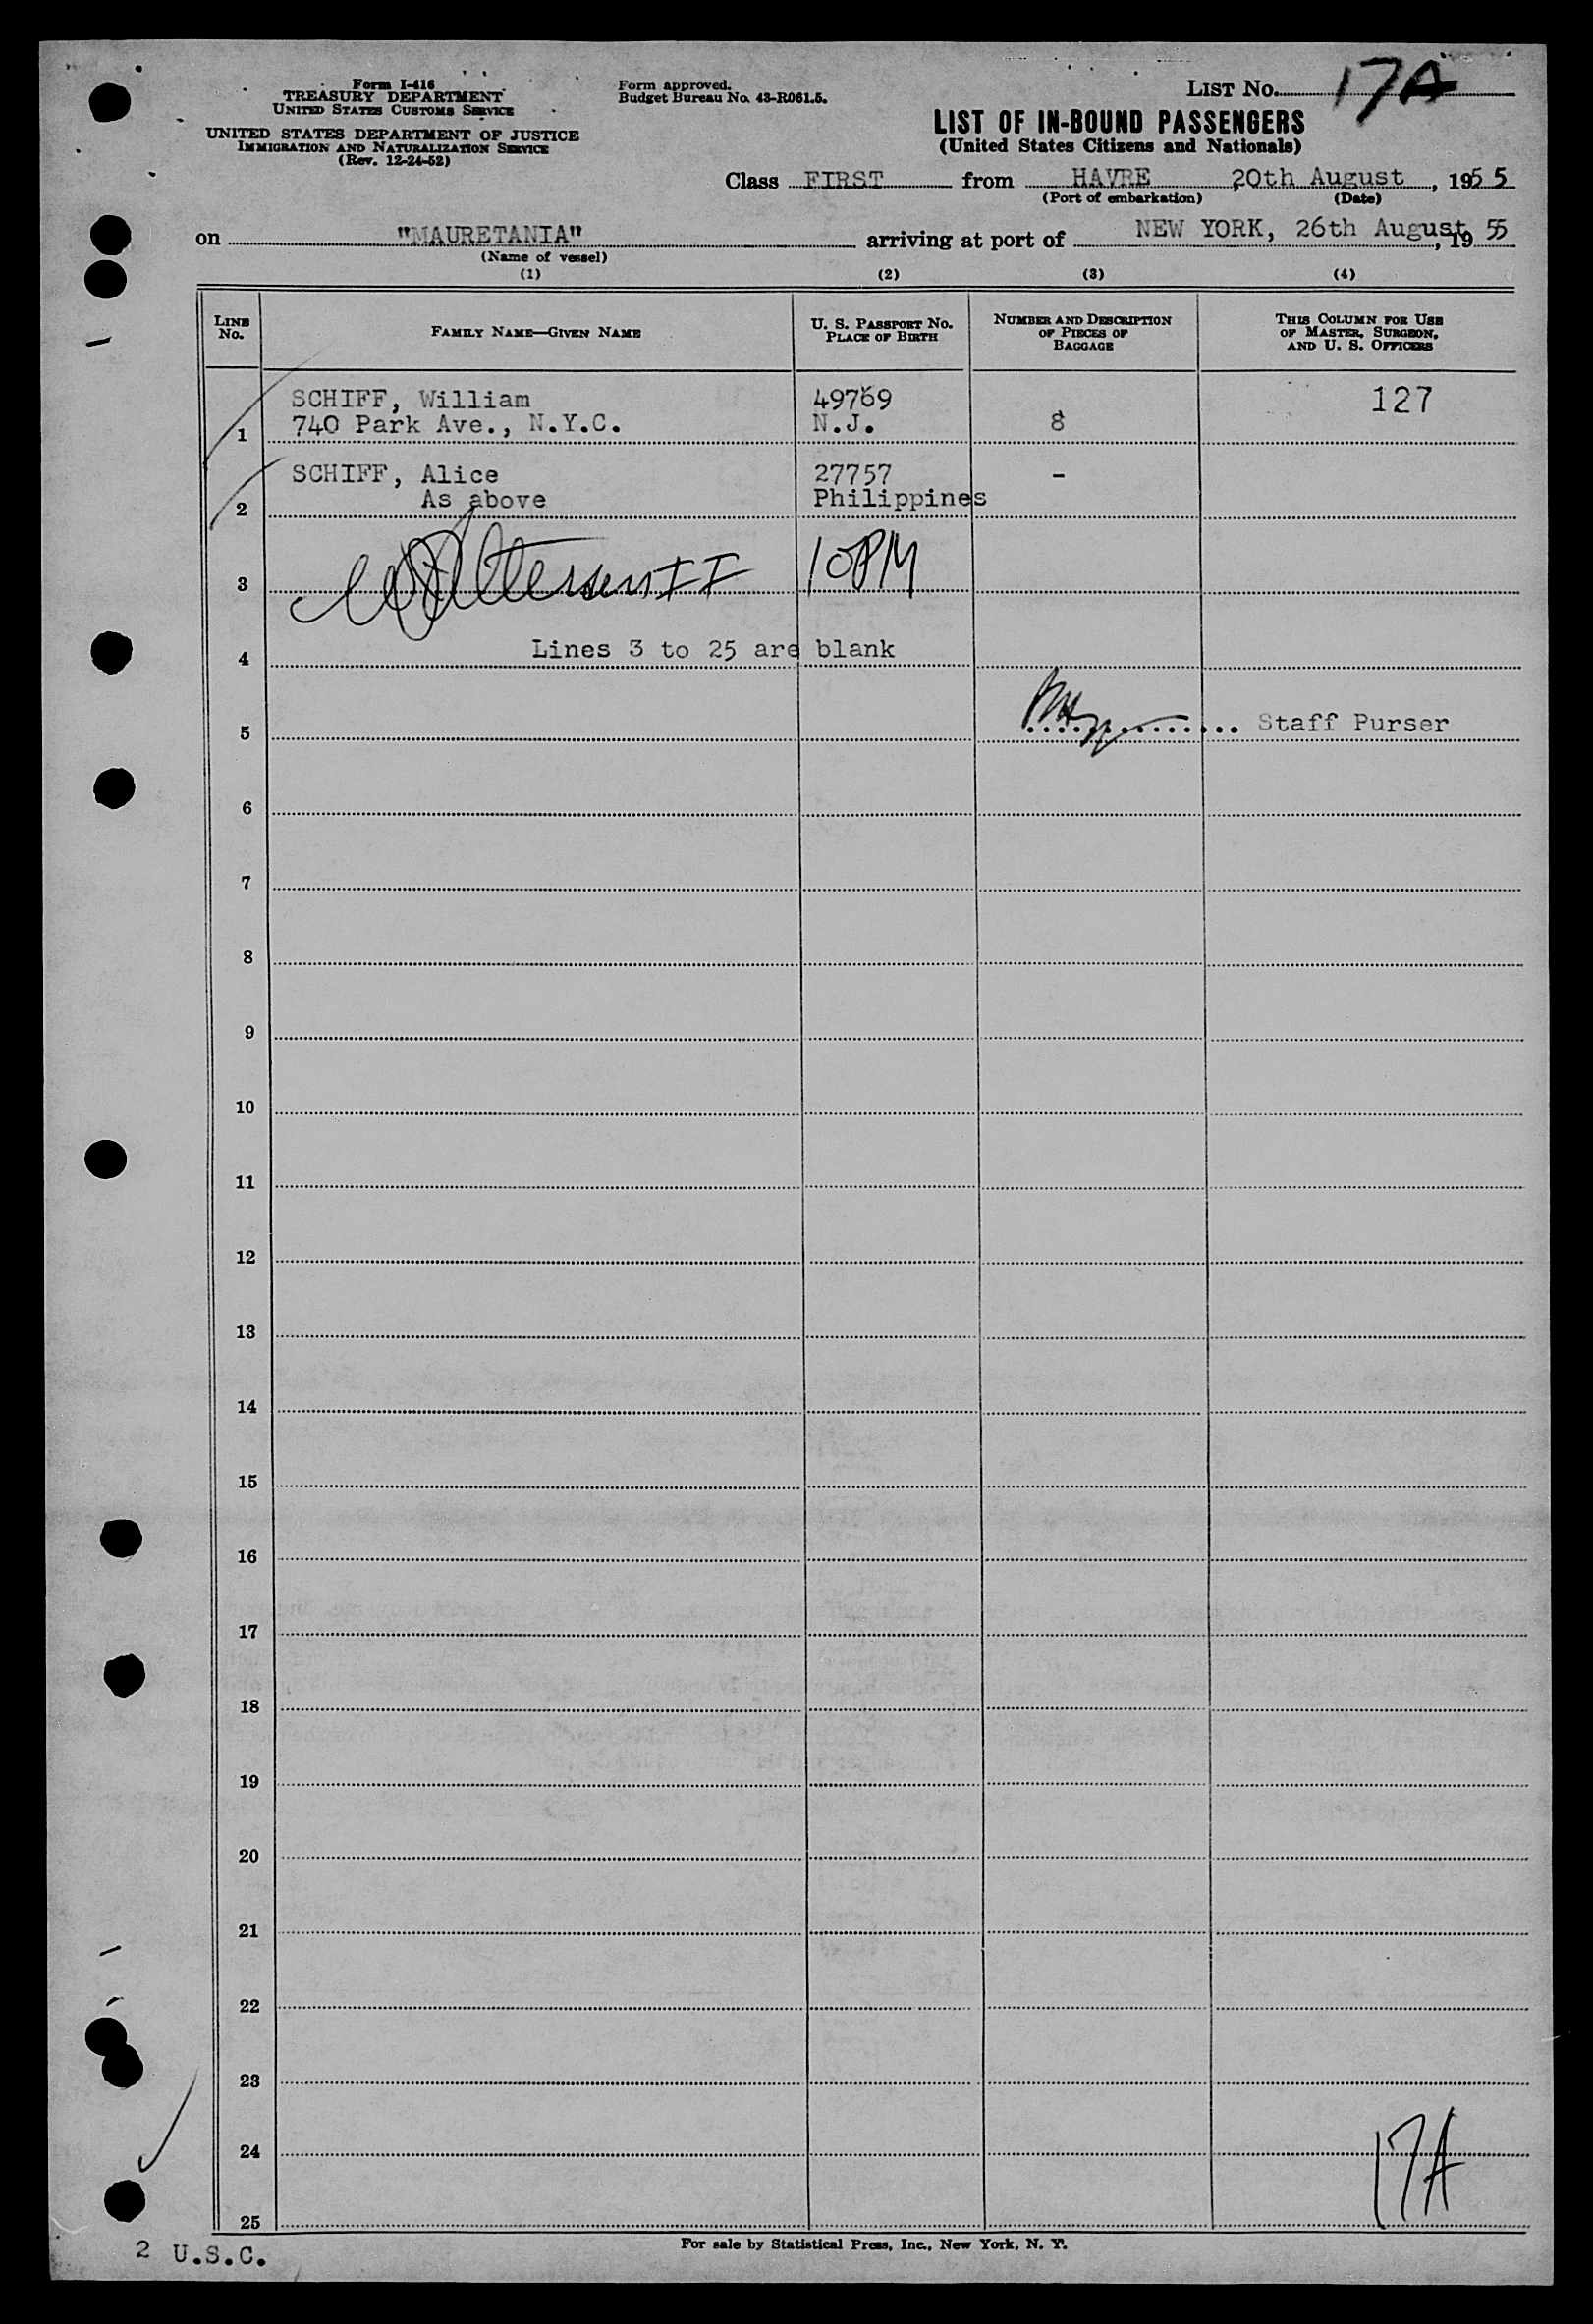 Form I-416
TREASURY DEPARTMENT
UNITED STATES CUSTOMS SERVICE
UNITED STATES DEPARTMENT OF JUSTICE
IMMIGRATION AND NATURALIZATION SERVICE
(Rev. 12-24-52)
Form approved.
Budget Bureau No. 43-R061.5.
LIST NO. 17A
LIST OF IN-BOUND PASSENGERS
(United States Citizens and Nationals)
Class FIRST from HAVRE 20th August, 1955
(Port of embarkation) (Date)
on "MAURETANIA" arriving at port of NEW YORK, 26th August, 19 55
(Name of vessel)
(1) (2) (3) (4)
LINE NO.
FAMILY NAME—GIVEN NAME
U. S. PASSPORT NO.
PLACE OF BIRTH
NUMBER AND DESCRIPTION
OF PIECES OF
BAGGAGE
THIS COLUMN FOR USE
OF MASTER, SURGEON,
AND U. S. OFFICERS
SCHIFF, William 49769 127
1 740 Park Ave., N.Y.C. N.J. 8
SCHIFF, Alice 27757 -
2 As above Philippines
3 II 10PM
4 Lines 3 to 25 are blank
5 Staff Purser
6
7
8
9
10
11
12
13
14
15
16
17
18
19
20
21
22
23
24 17A
25
2 U.S.C.
For sale by Statistical Press, Inc., New York, N. Y.